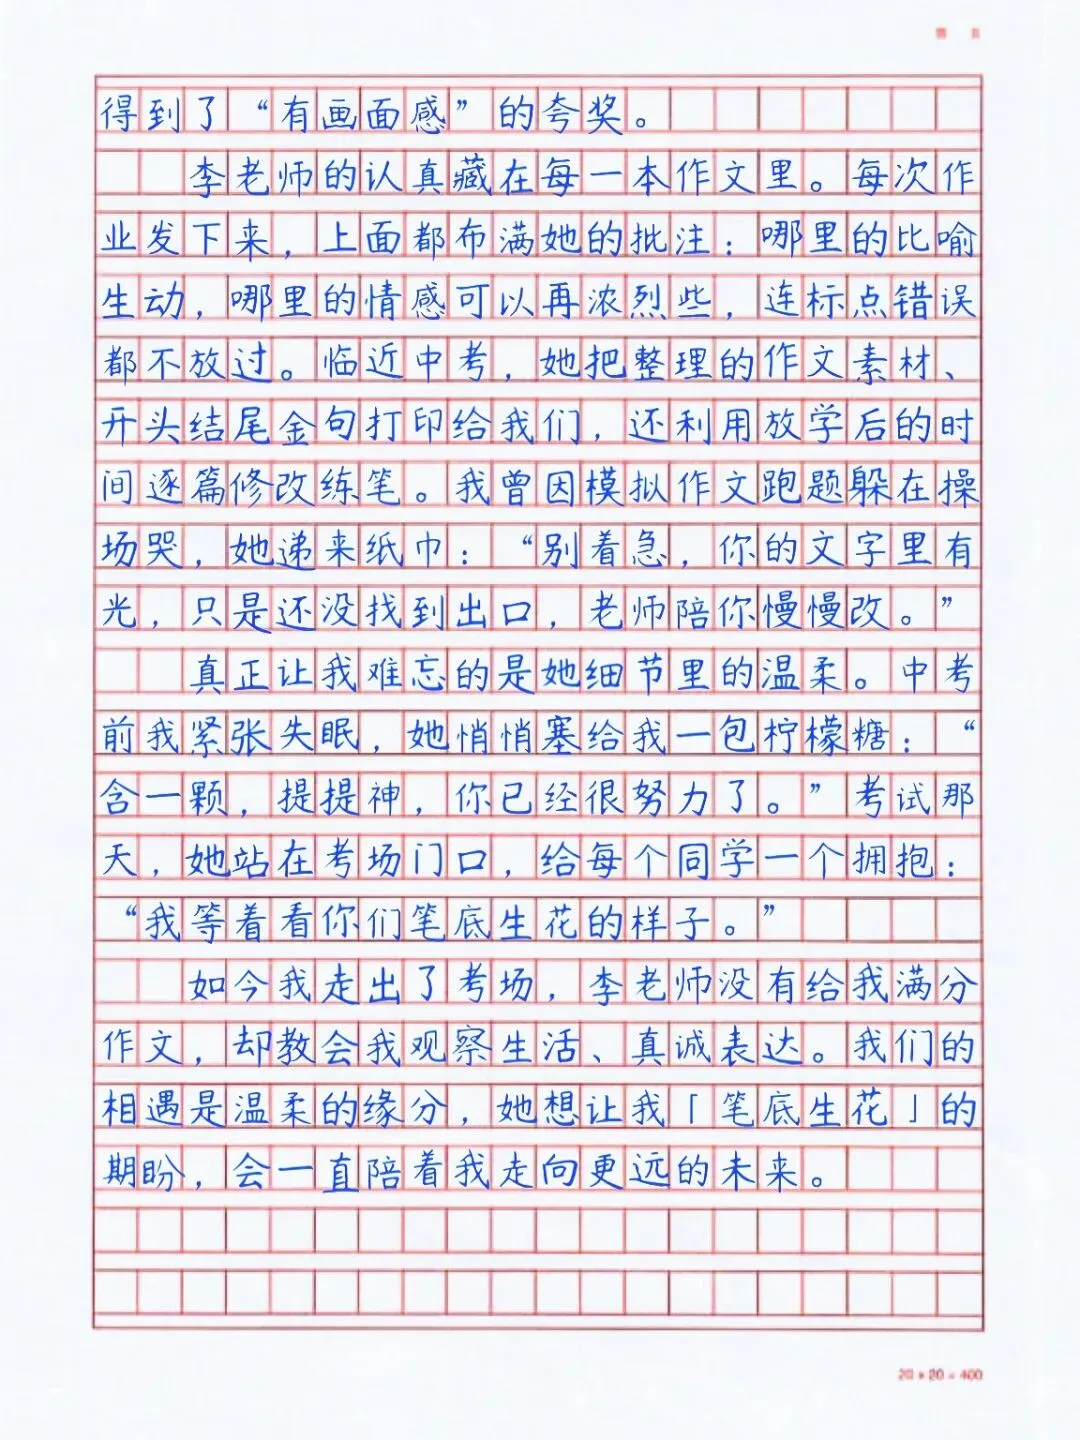 得到了“有画面感”的夸奖。
李老师的认真藏在每一本作文里。每次作
业发下来，上面都布满她的批注：哪里的比喻
生动，哪里的情感可以再浓烈些，连标点错误
都不放过。临近中考，她把整理的作文素材、
开头结尾金句打印给我们，还利用放学后的时
间逐篇修改练笔。我曾因模拟作文跑题躲在操
场哭，她递来纸巾：“别着急，你的文字里有
光，只是还没找到出口，老师陪你慢慢改。”
真正让我难忘的是她细节里的温柔。中考
前我紧张失眠，她悄悄塞给我一包柠檬糖：“
含一颗，提提神，你已经很努力了。”考试那
天，她站在考场门口，给每个同学一个拥抱：
“我等着看你们笔底生花的样子。”
如今我走出了考场，李老师没有给我满分
作文，却教会我观察生活、真诚表达。我们的
相遇是温柔的缘分，她想让我「笔底生花」的
期盼，会一直陪着我走向更远的未来。
20×20=400